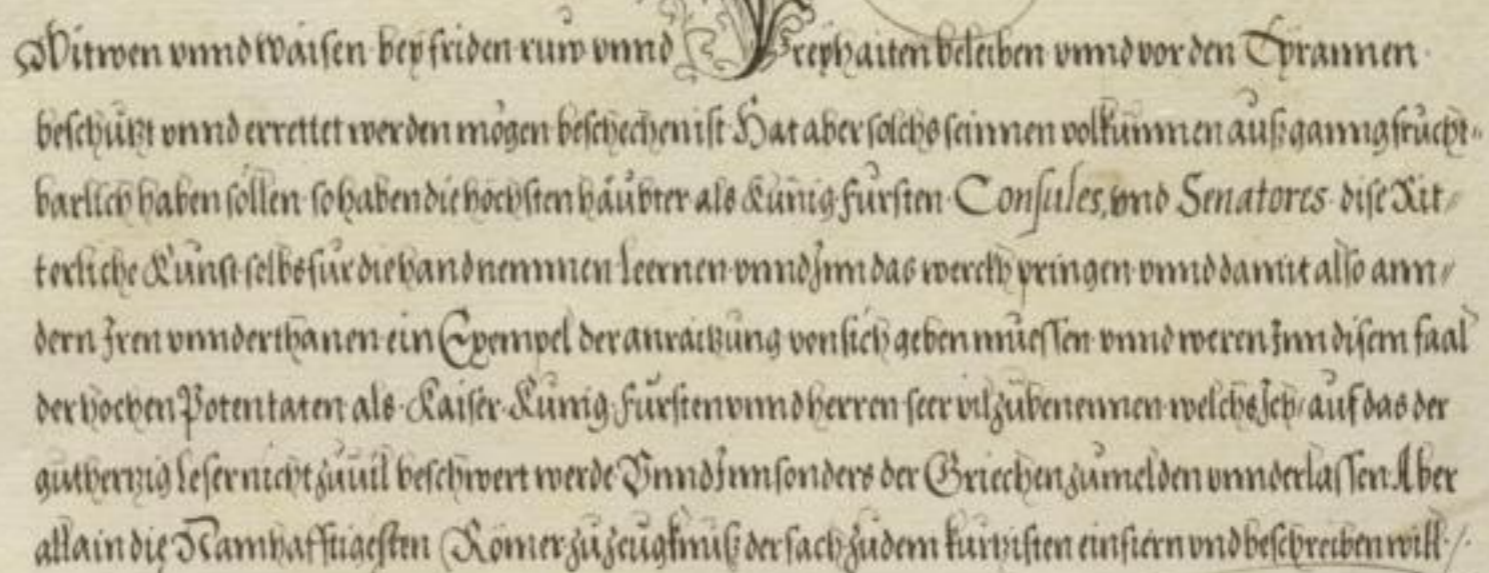 Witwen vnnd Waisen bey friden ruw vnnd Freyhaiten beleiben vnnd vor den Tyrannen
beschützt vnnd errettet werden mögen beschechen ist Hat aber solchs seinnen volkummen auß ganng frucht=
barlich haben söllen so haben die höchsten häubter als Künig fürsten Consules, vnd Senatores dise Rit//
terliche Kunst selbs für die hand nemmen leernen vnnd Jnn das werckh pringen vnnd damit also ann//
dern Jren vnnderthanen ein Exempel der anraitzung von sich geben müessen vnnd weren Jnn disem faal
der hochen Potentaten als Kaiser Künig fürsten vnnd herren seer vil zubenennen welchs Jch/ auf das der
gutherzig leser nicht zuuil beschwert werde Vnnd Jnnsonders der Griechen zumelden vnnderlassen Aber
allain die Namhafftigesten Römer zu zeugknuß der sach zu dem kurtzisten einfiern vnd beschreiben will /.